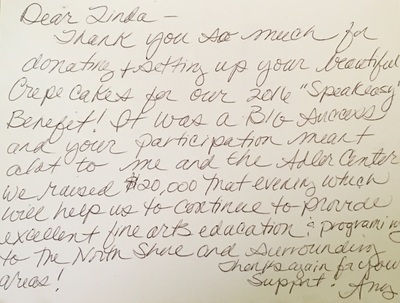 Dear Linda —
Thank you so much for
donating & setting up your beautiful
Crepe cakes for our 2016 "Speakeasy"
Benefit! It was a BIG Success
and your participation meant
alot to me and the Adler Center
We raised $20,000 that evening which
will help us to continue to provide
excellent fine arts education & programing
to The North Shore and Surrounding
areas!
Thanks again for your
Support! Amy